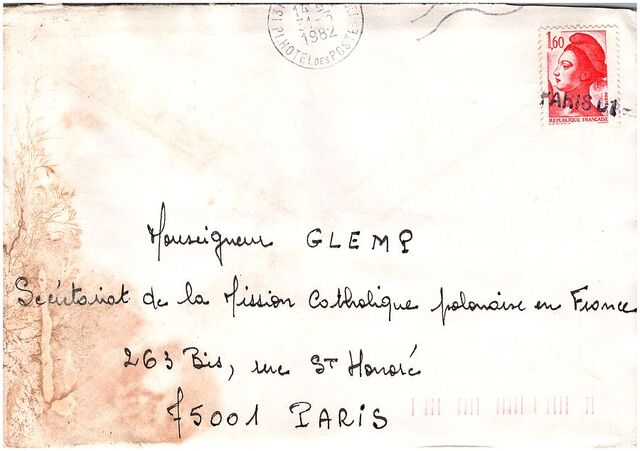 14
1982
HOTEL DES POSTES
1,60
REPUBLIQUE FRANÇAISE
PARIS
Monseigneur GLEMP
Secrétariat de la Mission Catholique polonaise en France
263 Bis, rue St Honoré
75001 PARIS